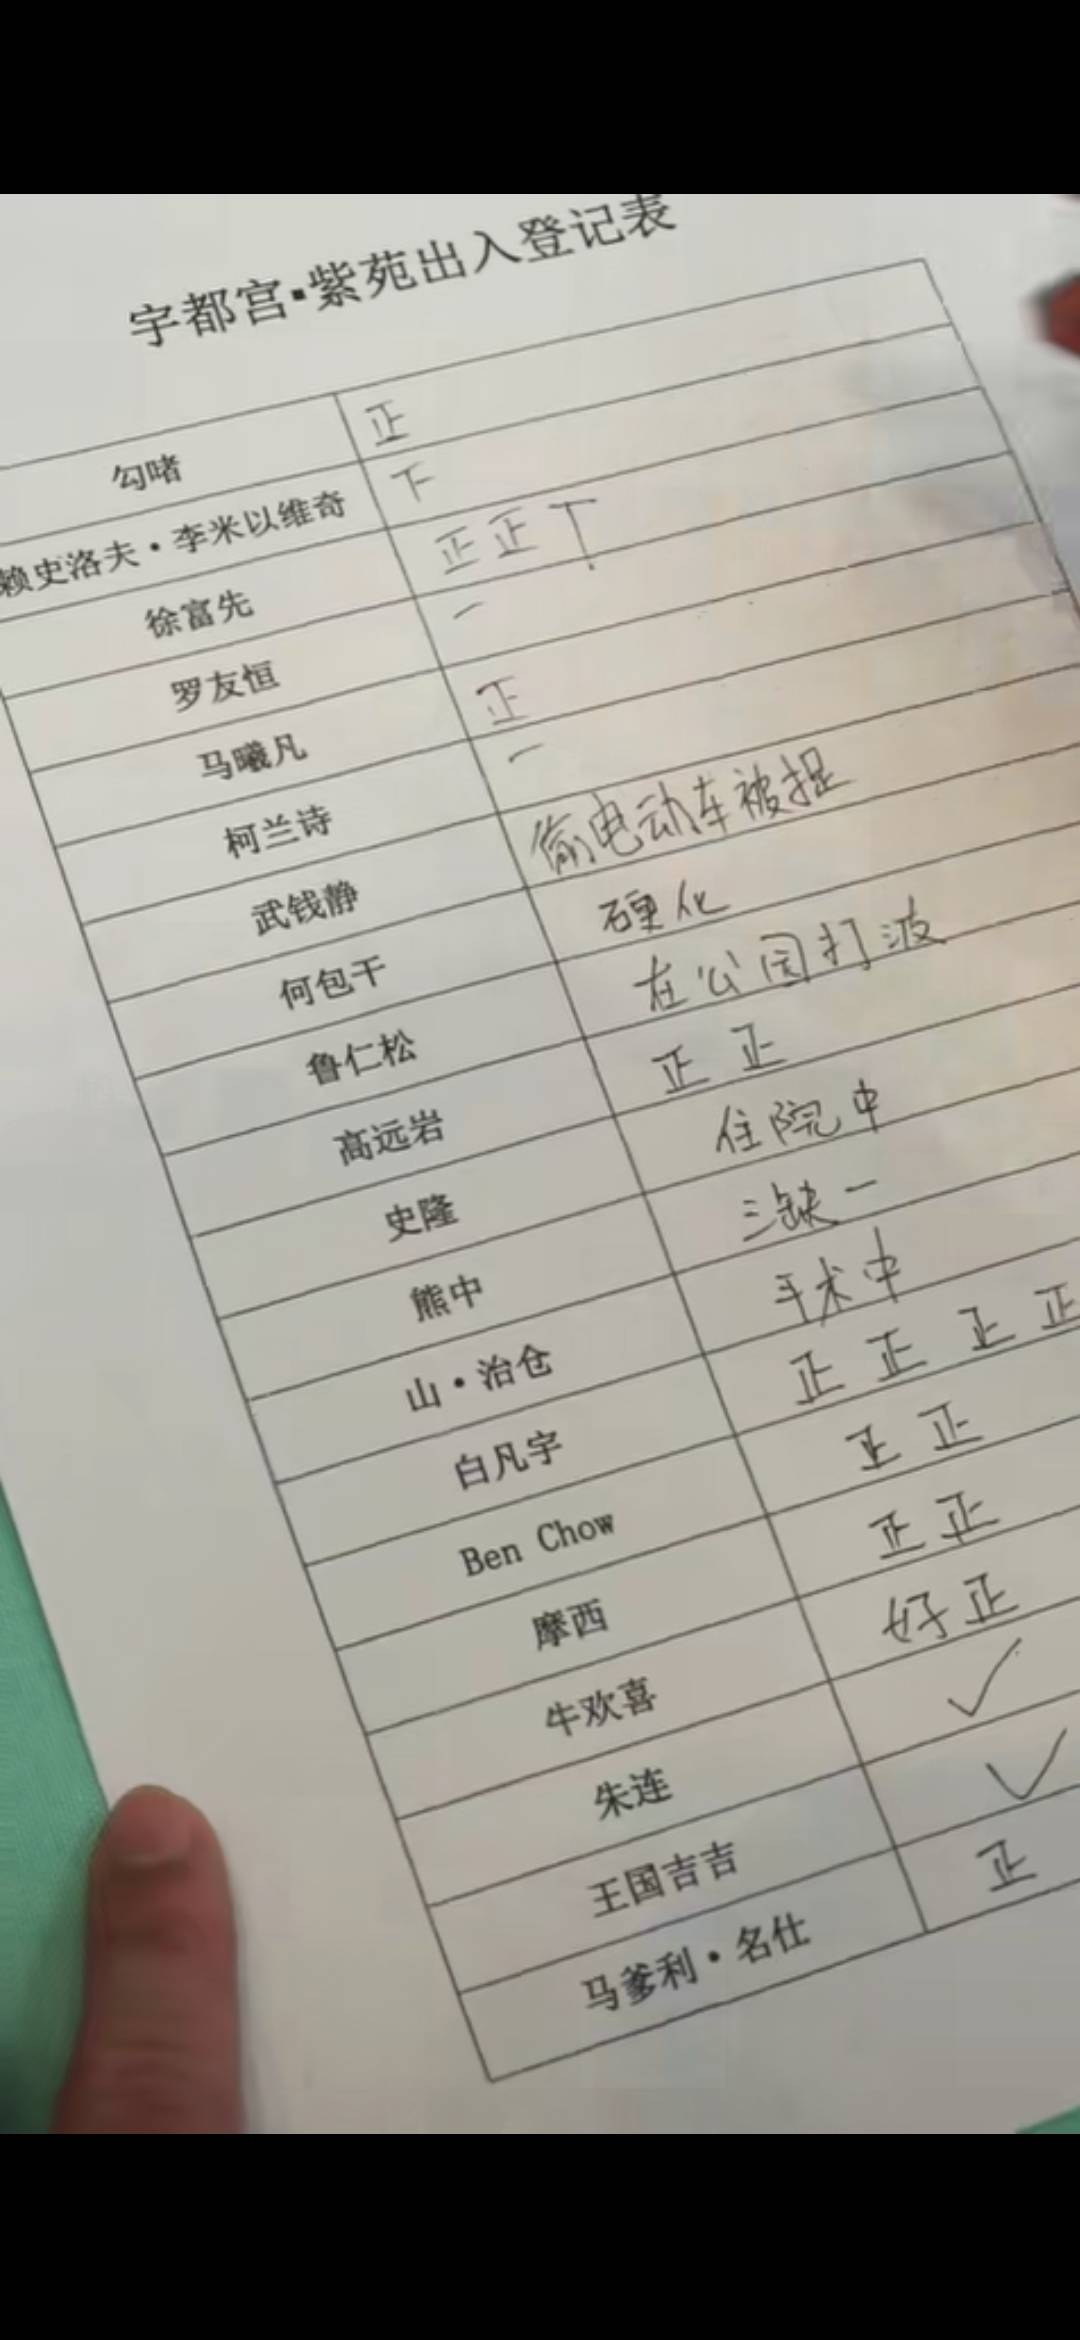 宇都宫·紫苑出入登记表
勾啫 正
赖史洛夫·李米以维奇 下
徐富先 正正丅
罗友恒 一
马曦凡 正
柯兰诗 一
武钱静 偷电动车被捉
何包干 硬化
鲁仁松 在公园打波
高远岩 正正
史隆 住院中
熊中 三缺一
山·治仓 手术中
白凡宇 正正正正
Ben Chow 正正
摩西 正正
牛欢喜 好正
朱连 ✓
王国吉吉 ✓
马爹利·名仕 正